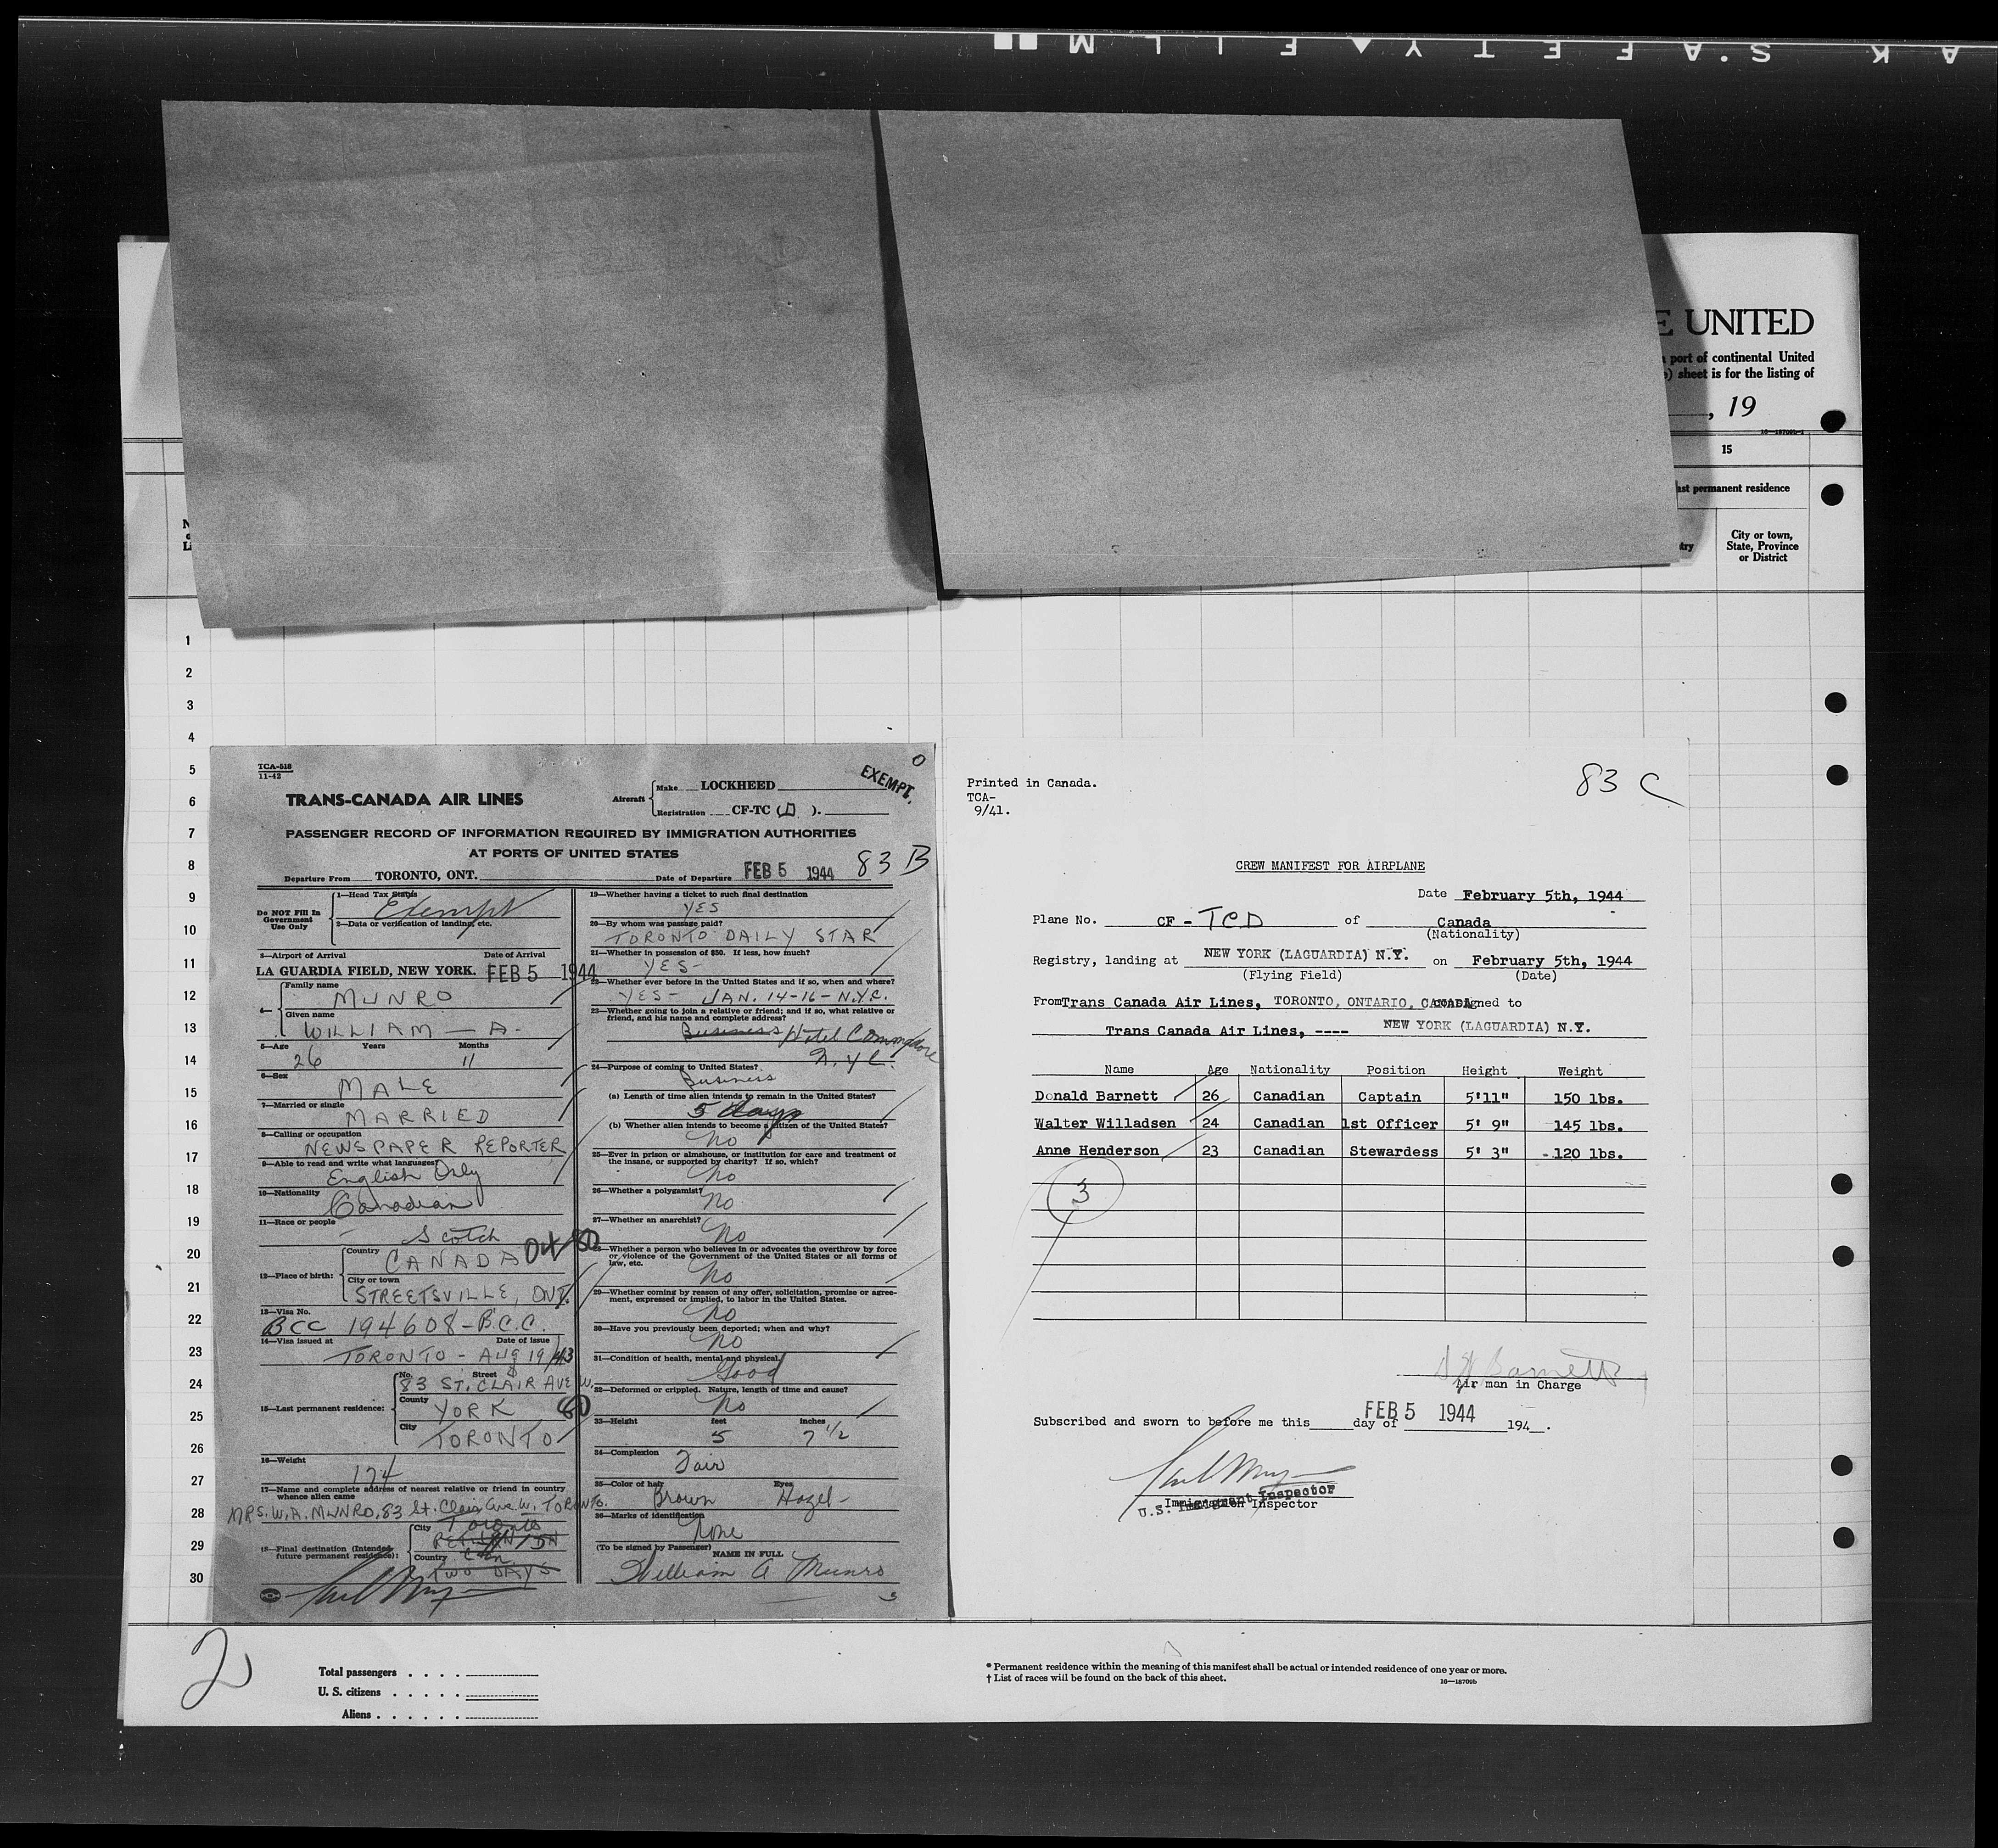 K S.AFETY▲FILM
E UNITED
port of continental United
sheet is for the listing of
, 19
15
ast permanent residence
City or town,
State, Province
or District
1
2
3
4
5
6
7
8
9
10
11
12
13
14
15
16
17
18
19
20
21
22
23
24
25
26
27
28
29
30
TCA-518
11-42
O
EXEMPT.
TRANS-CANADA AIR LINES
Aircraft
Make LOCKHEED
Registration CF-TC (D).
PASSENGER RECORD OF INFORMATION REQUIRED BY IMMIGRATION AUTHORITIES
AT PORTS OF UNITED STATES
Departure From TORONTO, ONT. Date of Departure FEB 5 1944 83 B
Do NOT Fill In
Government
Use Only
1—Head Tax Status
Exempt
2—Data or verification of landing, etc.
3—Airport of Arrival Date of Arrival
LA GUARDIA FIELD, NEW YORK. FEB 5 1944
4—
Family name
MUNRO
Given name
WILLIAM — A-
5—Age Years Months
26 11
6—Sex
MALE
7—Married or single
MARRIED
8—Calling or occupation
NEWSPAPER REPORTER
9—Able to read and write what languages?
English Only
10—Nationality
Canadian
11—Race or people
Scotch
12—Place of birth:
Country
CANADA
City or town
STREETSVILLE, ONT.
13—Visa No.
BCC 194608-B.C.C.
14—Visa issued at Date of issue
TORONTO - AUG 19/43
15—Last permanent residence:
No. Street
83 ST. CLAIR AVE W.
County
YORK
City
TORONTO
16—Weight
174
17—Name and complete address of nearest relative or friend in country
whence alien came
MRS. W.A. MUNRO, 83 St. Clair Ave W. TORONTO.
18—Final destination (Intended
future permanent residence):
City Toronto
RETURN IN
Country Can
TWO DAYS
19—Whether having a ticket to such final destination
YES
20—By whom was passage paid?
TORONTO DAILY STAR
21—Whether in possession of $50. If less, how much?
YES-
22—Whether ever before in the United States and if so, when and where?
YES- JAN. 14-16-N.Y.C.
23—Whether going to join a relative or friend; and if so, what relative or
friend, and his name and complete address?
Business Hotel Commodore
N.Y.C.
24—Purpose of coming to United States?
Business
(a) Length of time alien intends to remain in the United States?
5 days
(b) Whether alien intends to become a citizen of the United States?
No
25—Ever in prison or almshouse, or institution for care and treatment of
the insane, or supported by charity? If so, which?
No
26—Whether a polygamist?
No
27—Whether an anarchist?
No
28—Whether a person who believes in or advocates the overthrow by force
or violence of the Government of the United States or all forms of
law, etc.
No
29—Whether coming by reason of any offer, solicitation, promise or agree-
ment, expressed or implied, to labor in the United States.
No
30—Have you previously been deported; when and why?
No
31—Condition of health, mental and physical.
Good
32—Deformed or crippled. Nature, length of time and cause?
No
33—Height feet inches
5 7 1/2
34—Complexion
Fair
35—Color of hair Eyes
Brown Hazel-
36—Marks of identification
None
(To be signed by Passenger)
NAME IN FULL
William A Munro
Printed in Canada.
TCA-
9/41.
83 C
CREW MANIFEST FOR AIRPLANE
Date February 5th, 1944
Plane No. CF - TCD of Canada
(Nationality)
Registry, landing at NEW YORK (LAGUARDIA) N.Y. on February 5th, 1944
(Flying Field) (Date)
From Trans Canada Air Lines, TORONTO, ONTARIO, CANADA signed to
Trans Canada Air Lines, ---- NEW YORK (LAGUARDIA) N.Y.
Name Age Nationality Position Height Weight
Donald Barnett 26 Canadian Captain 5'11" 150 lbs.
Walter Willadsen 24 Canadian 1st Officer 5' 9" 145 lbs.
Anne Henderson 23 Canadian Stewardess 5' 3" 120 lbs.
3
Barnett
Air man in Charge
Subscribed and sworn to before me this day of FEB 5 1944 194 .
Immigration Inspector
U.S. Immigrant Inspector
2
Total passengers . . . .
U. S. citizens . . . . .
Aliens . . . . . .
* Permanent residence within the meaning of this manifest shall be actual or intended residence of one year or more.
† List of races will be found on the back of this sheet.
16—18709b